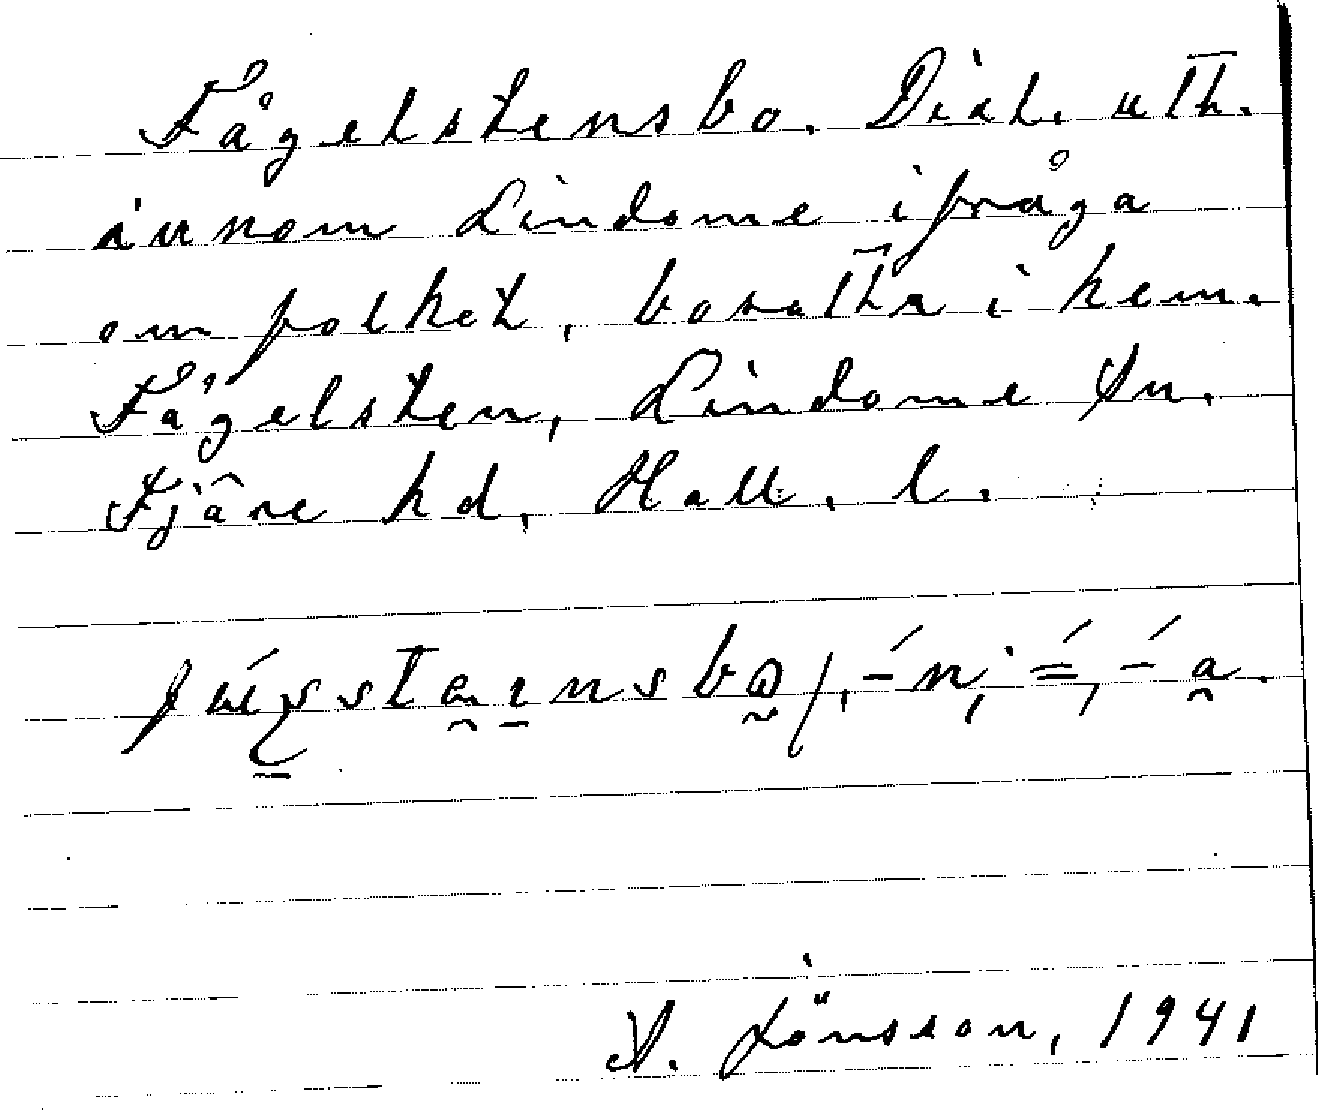 Fågelstensbo. Dial. uttr.
innom Lindome i fråga
om folket, bosatta i hem.
Fågelsten, Lindome sn.
Fjäre hd, Hall. l.
A. Jönsson, 1941